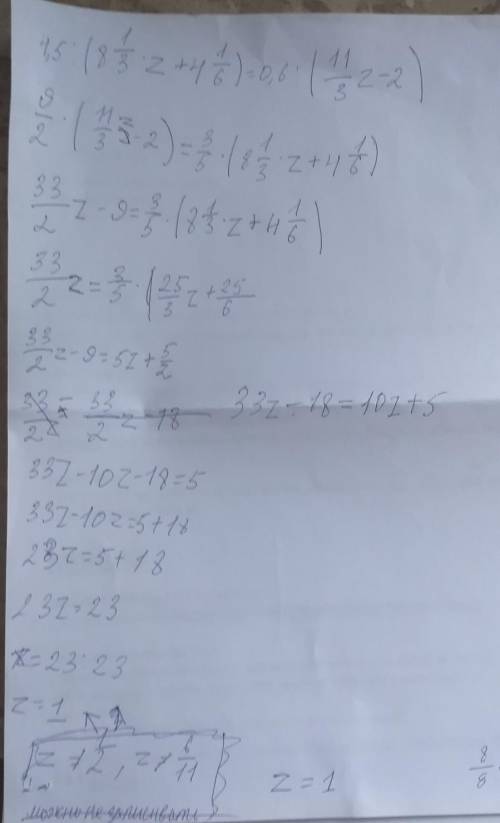 4,5 · (8 1/3 · z + 4 1/6) = 0,6 · (11/3 z - 2)
9/2 · (11/3 z - 2) = 3/5 · (8 1/3 · z + 4 1/6)
33/2 z - 9 = 3/5 · (8 1/3 · z + 4 1/6)
33/2 z = 3/5 · (25/3 z + 25/6
33/2 z - 9 = 5z + 5/2
33/2 z - 18 33z - 18 = 10z + 5
33z - 10z - 18 = 5
33z - 10z = 5 + 18
23z = 5 + 18
23z = 23
z = 23 : 23
z = 1
z ≠ 6/11
можно не записывать
z = 1
8/8